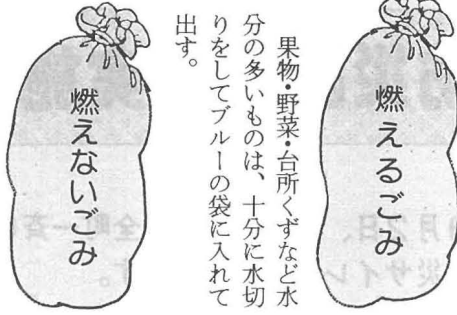 燃えるごみ
果物・野菜・台所くずなど水
分の多いものは、十分に水切
りをしてブルーの袋に入れて
出す。
燃えないごみ